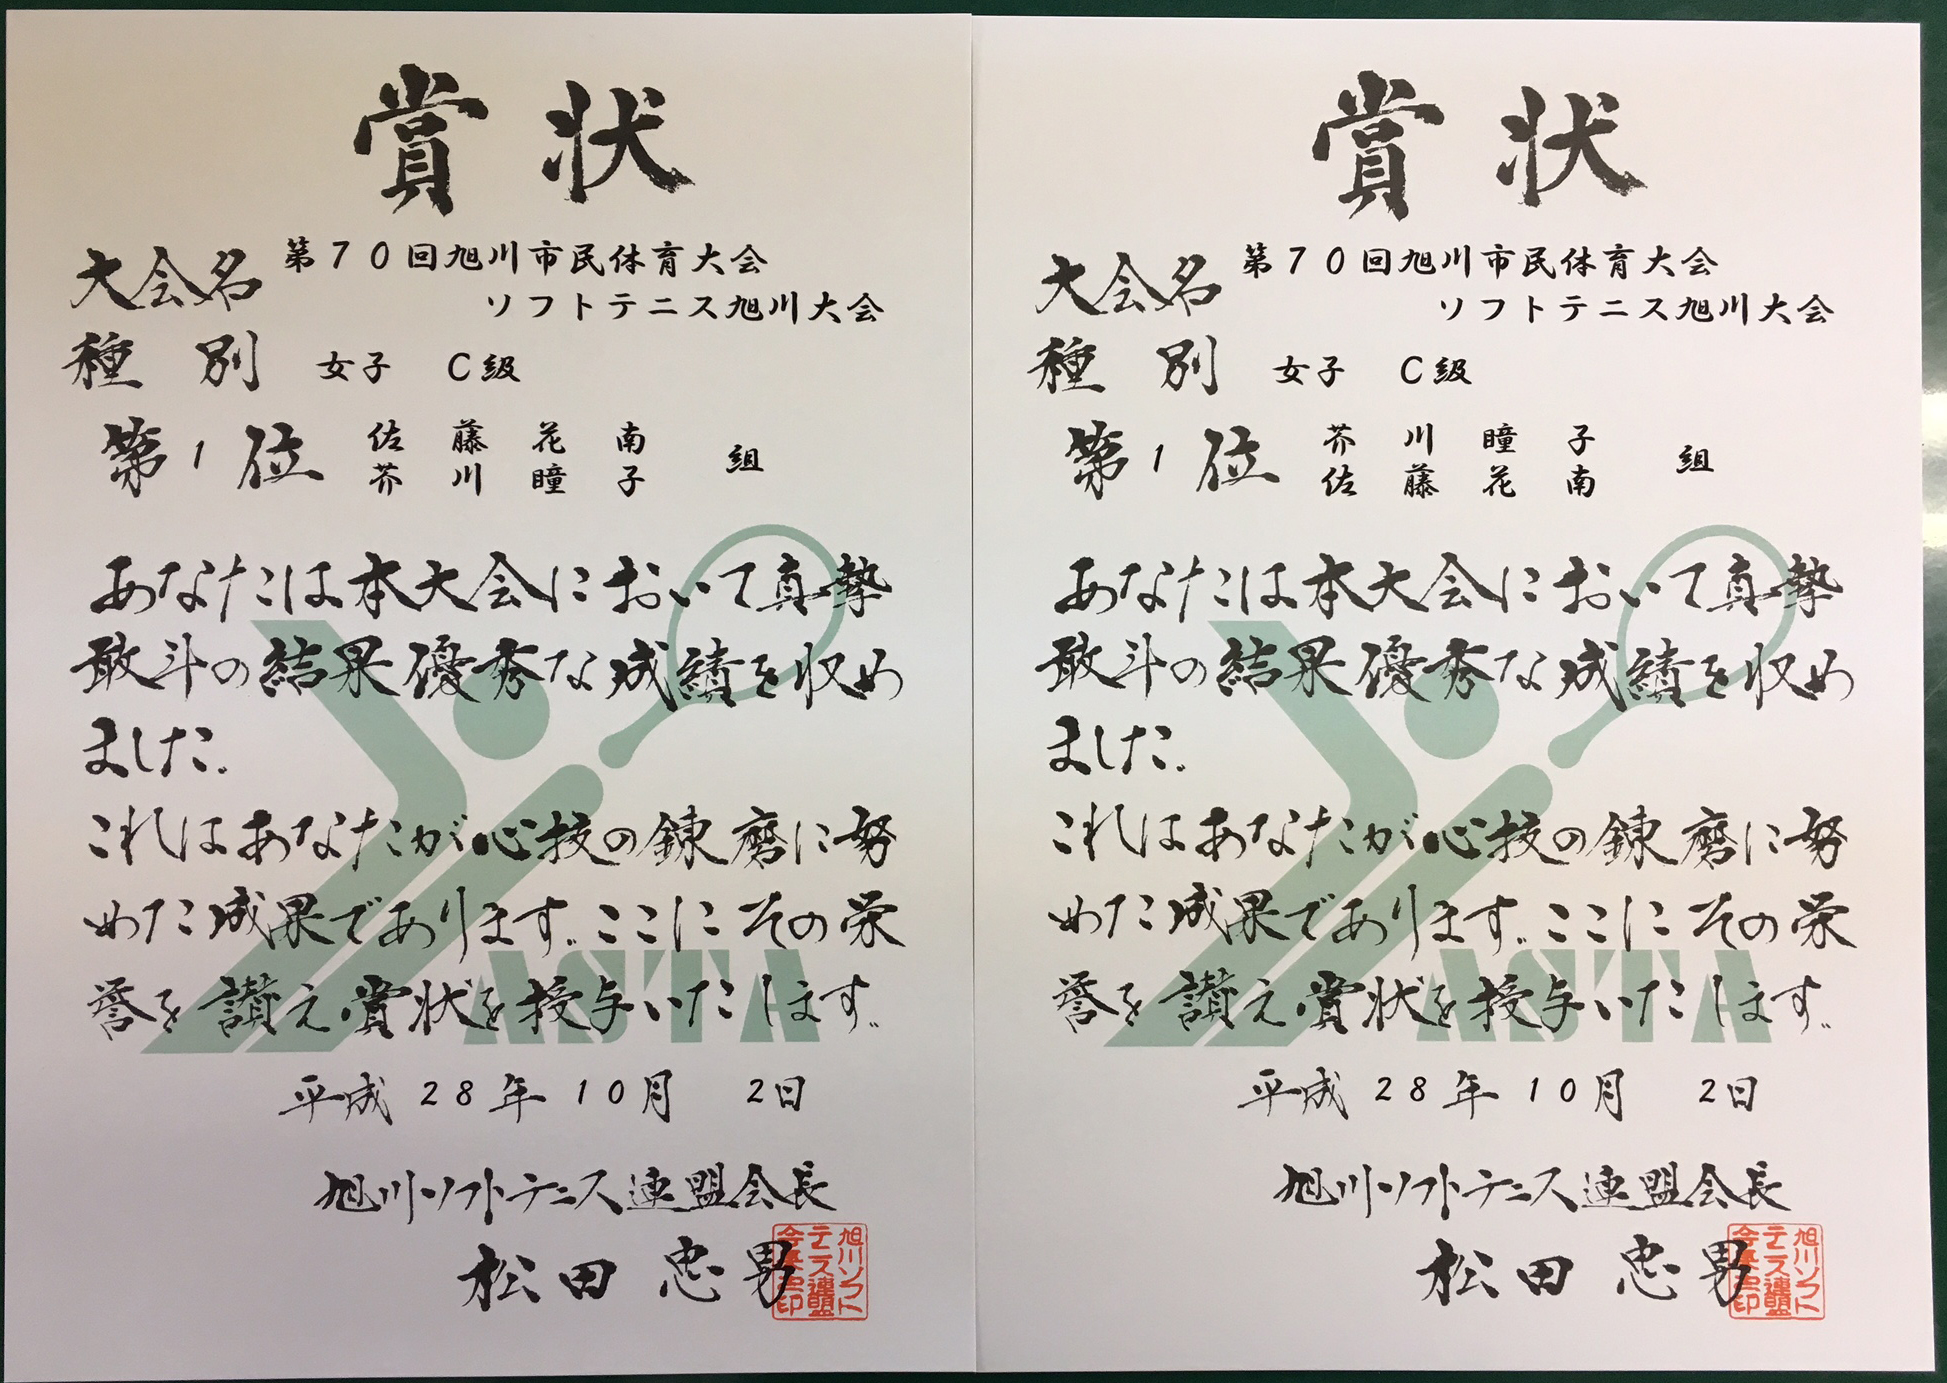 賞状
大会名 第70回旭川市民体育大会
ソフトテニス旭川大会
種別 女子 C級
第1位 佐藤花南 組
芥川瞳子
あなたは本大会において真摯
敢斗の結果優秀な成績を収め
ました。
これはあなたが心技の錬磨に努
めた成果であります。ここにその栄
誉を讃え賞状を授与いたします。
ASTA
平成28年10月 2日
旭川ソフトテニス連盟会長
松田忠男
旭川ソフト
テニス連盟
賞状
大会名 第70回旭川市民体育大会
ソフトテニス旭川大会
種別 女子 C級
第1位 芥川瞳子 組
佐藤花南
あなたは本大会において真摯
敢斗の結果優秀な成績を収め
ました。
これはあなたが心技の錬磨に努
めた成果であります。ここにその栄
誉を讃え賞状を授与いたします。
ASTA
平成28年10月 2日
旭川ソフトテニス連盟会長
松田忠男
旭川ソフト
テニス連盟